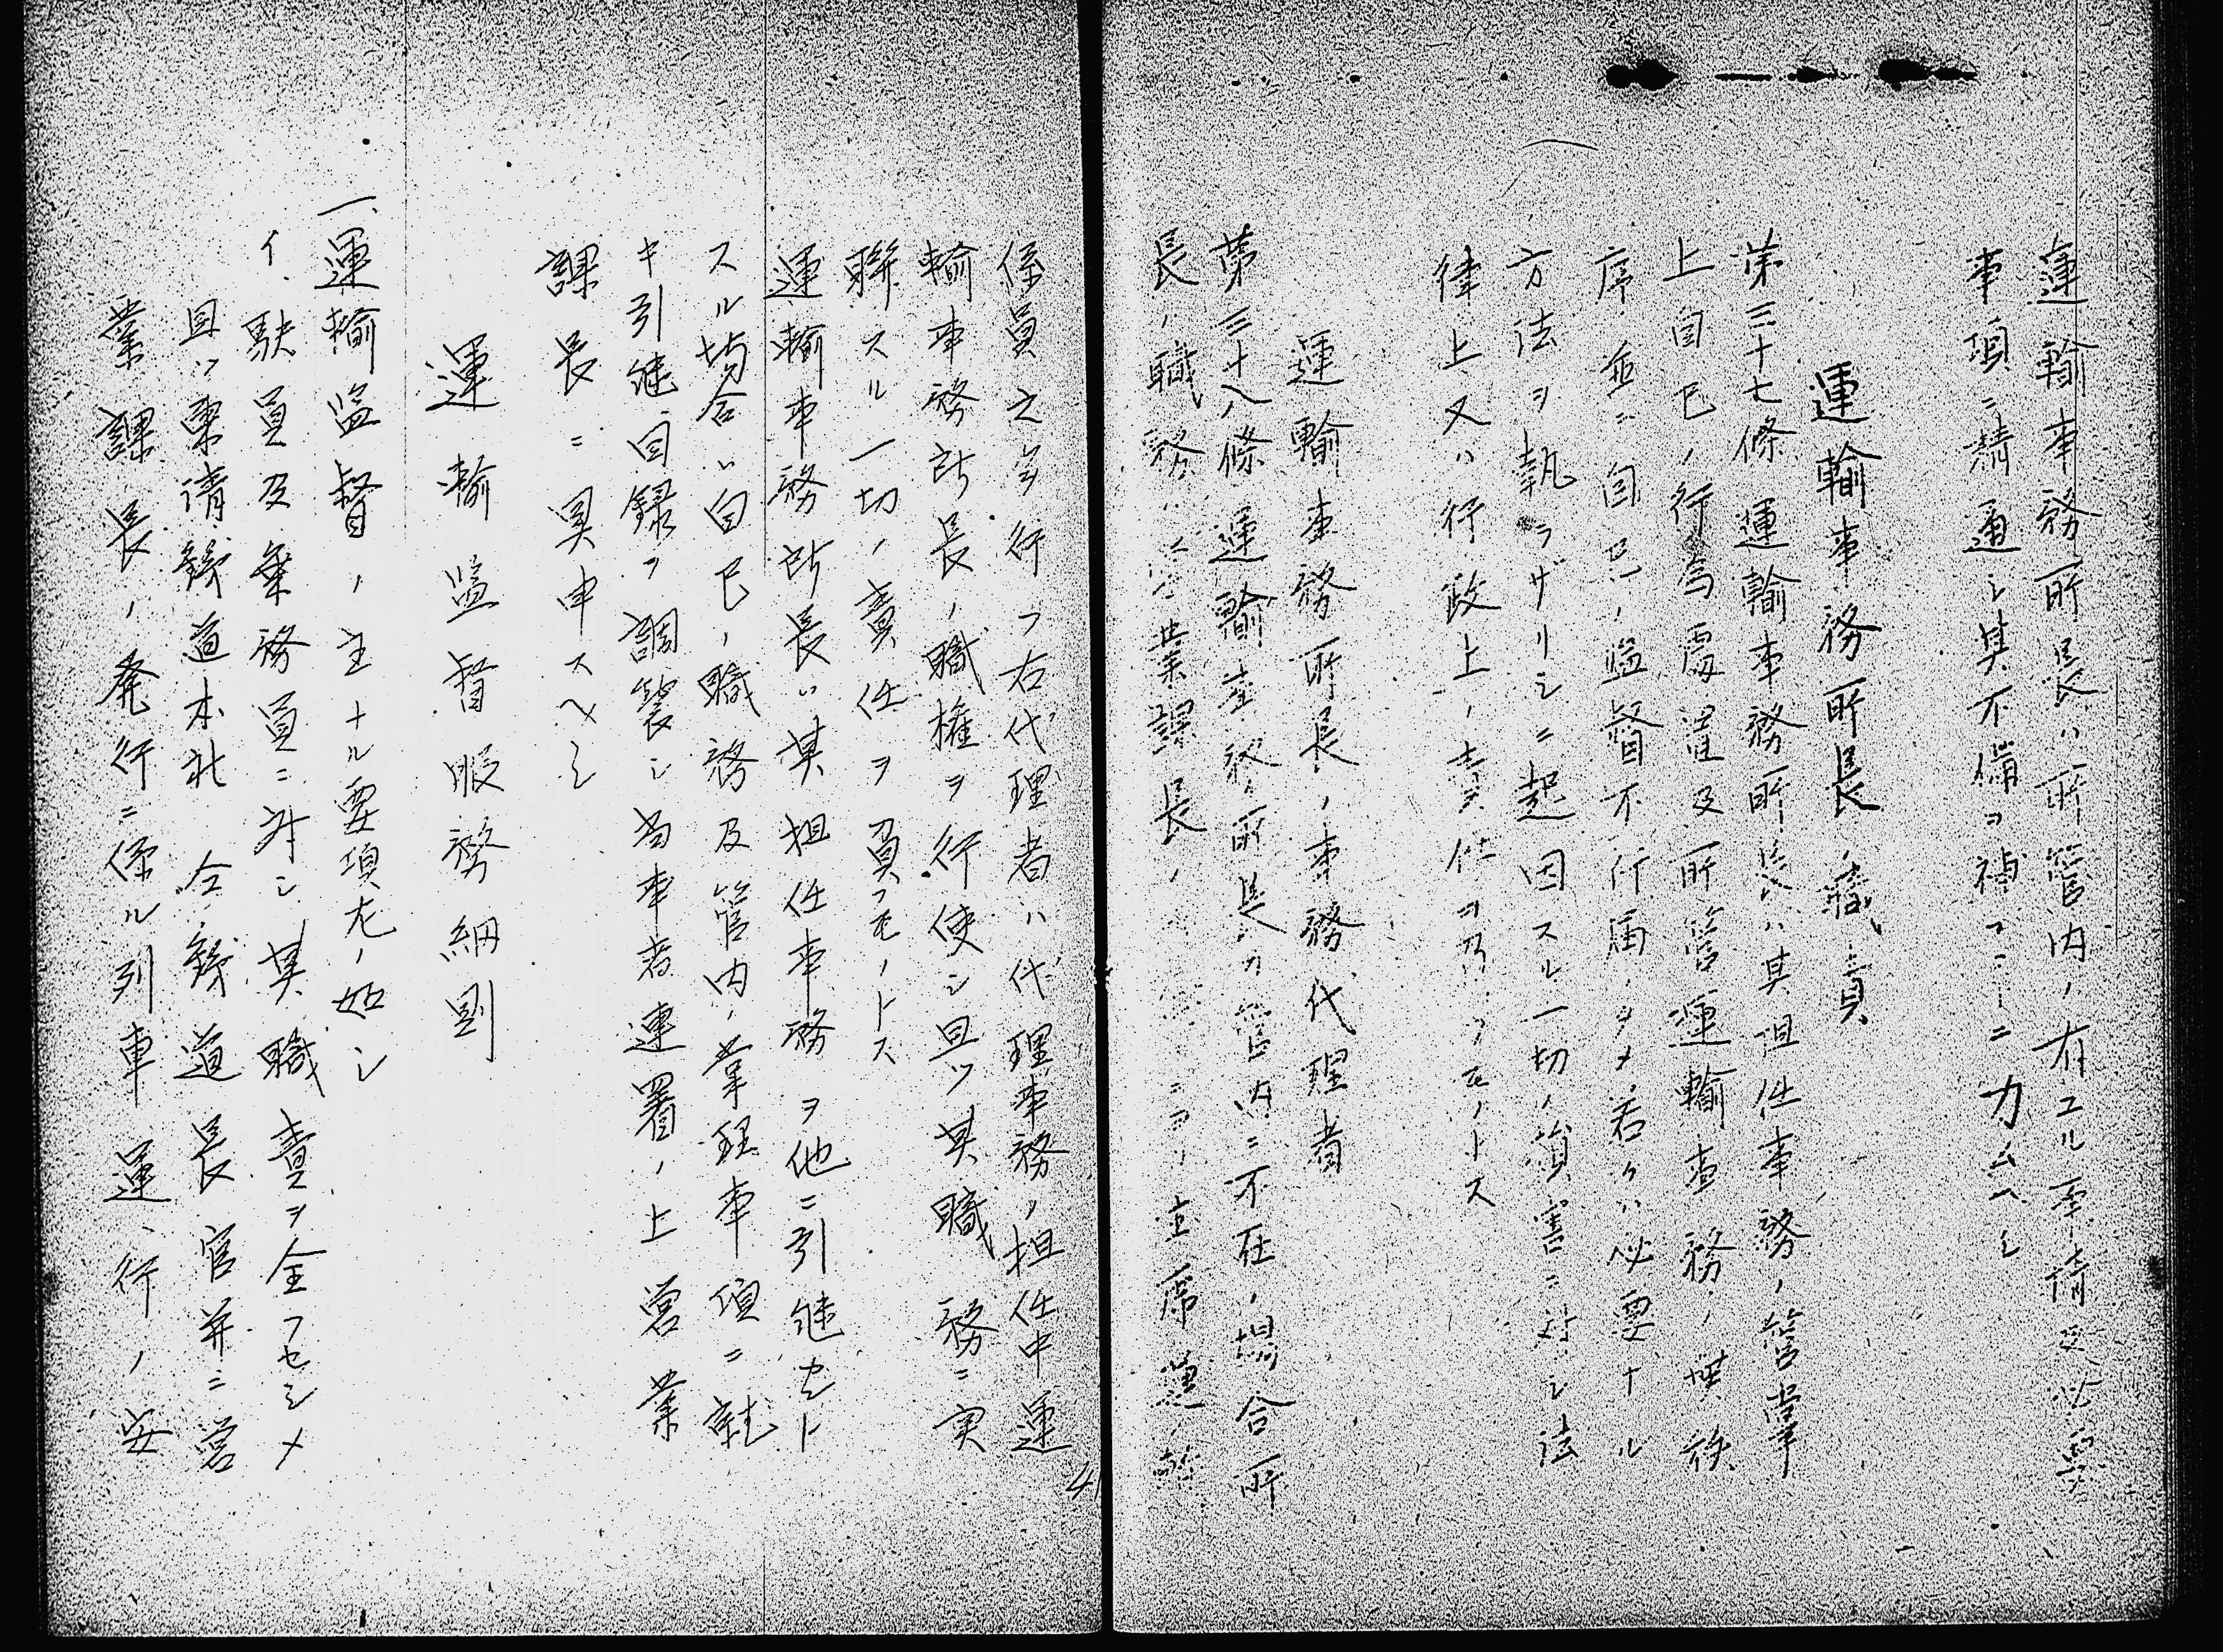 運輸事務所長ハ所管内ノ有ユル事情及必要
事項ニ精通シ其不備ヲ補フコトニ力ムヘシ
運輸事務所長ノ職責
第三十七條 運輸事務所長ハ其担任事務ノ管掌
上自己ノ行為處置及所管運輸事務ノ
序並ニ自己ノ監督不行届ノタメ若クハ必要ナル
方法ヲ執ラザリシニ起因スル一切ノ損害ニ対シ法
律上又ハ行政上ノ責任ヲ乃フモノトス
運輸事務所長ノ事務代理者
第三十八條 運輸事務所長カ管内ニ不在ノ場合所
長ノ職務ハ営業課長ノ
係員之ヲ行フ右代理者ハ代理事務ノ担任中運
輸事務所長ノ職権ヲ行使シ且ツ其職務ニ実
聯スル一切ノ責任ヲ負フモノトス
運輸事務所長ハ其担任事務ヲ他ニ引継セント
スル場合ハ自己ノ職務及管内ノ業理事項ニ就
キ引継目録ヲ調製シ当事者連署ノ上営業
課長ニ具申スヘシ
運輸監督服務細則
一、運輸監督ノ主ナル要項左ノ如シ
イ、駅員及乗務員ニ対シ其職責ヲ全フセシメ
且ツ東清鉄道本社 全鉄道長官并ニ営
業課長ノ発行ニ係ル列車運行ノ安